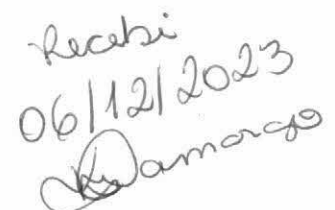 Recebi
06/12/2023
Camargo